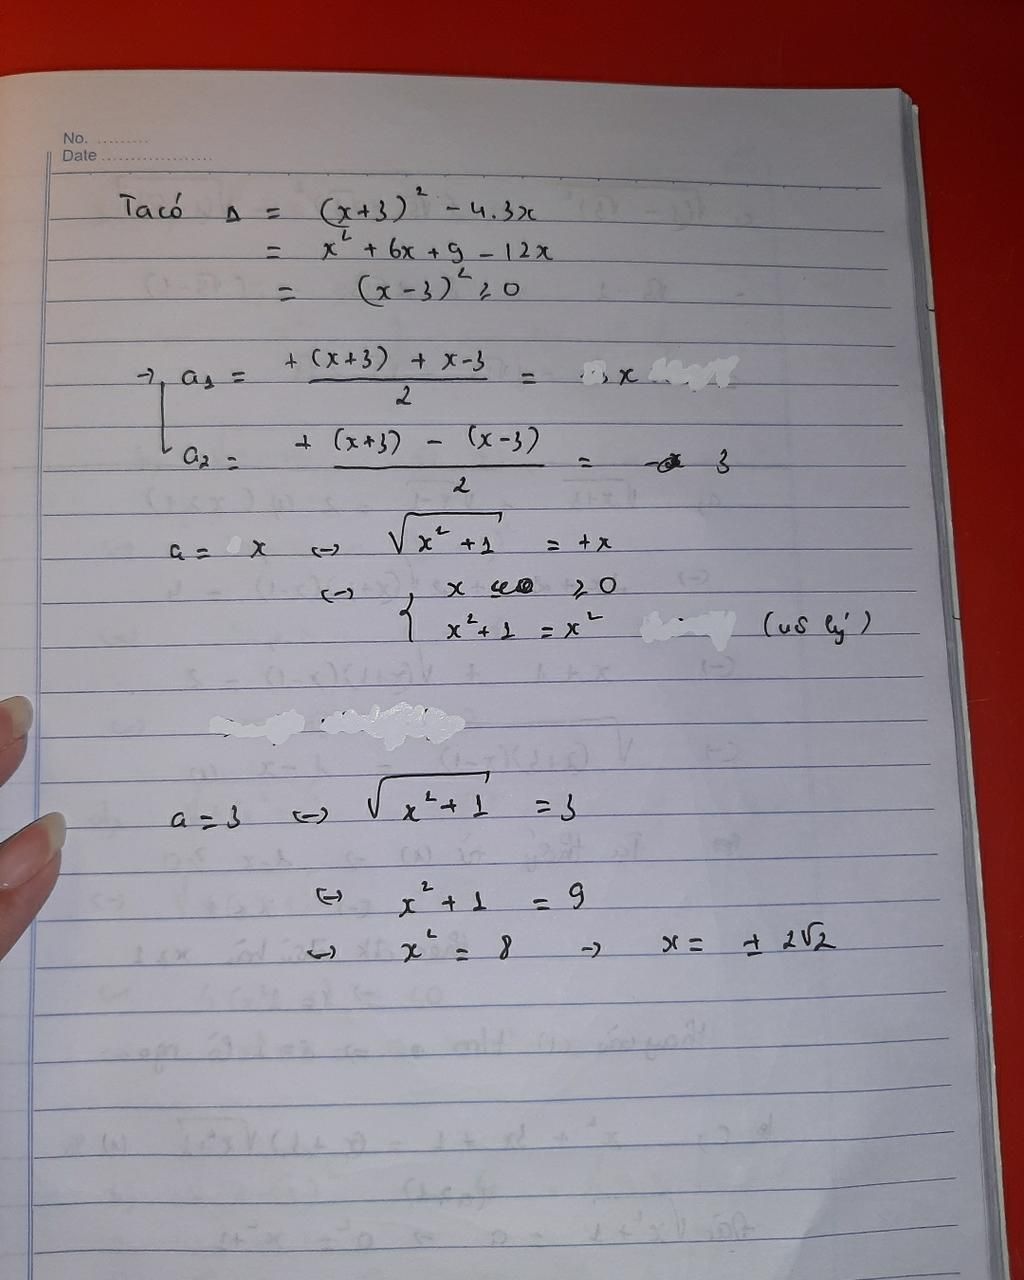 No. .........
Date ...................
Ta có Δ = (x+3)² - 4.3x
= x² + 6x + 9 - 12x
= (x-3)² ≥ 0
→ a₁ = + (x+3) + x-3 / 2 = x
a₂ = + (x+3) - (x-3) / 2 = 3
a = x ↔ √x²+1 = +x
↔ { x ≥ 0
x²+1 = x² (vô lý)
a = 3 ↔ √x²+1 = 3
↔ x² + 1 = 9
↔ x² = 8 → x = ± 2√2